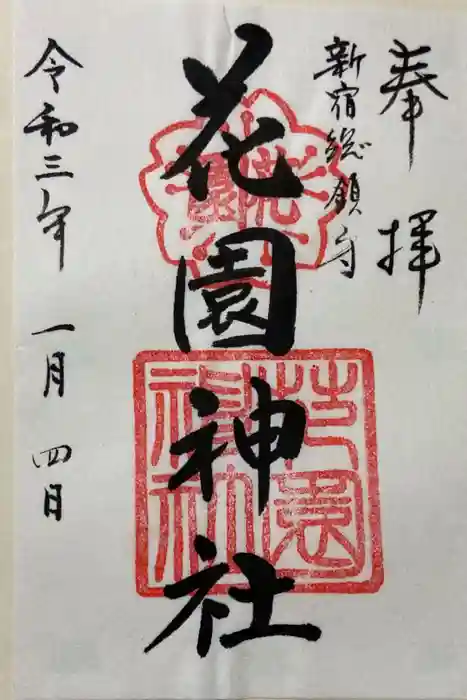 奉拝
新宿総領守
花園神社
花園
花園神社
令和三年 一月 四日